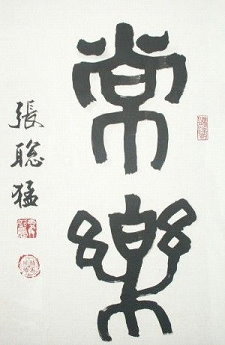 常樂
張聡猛